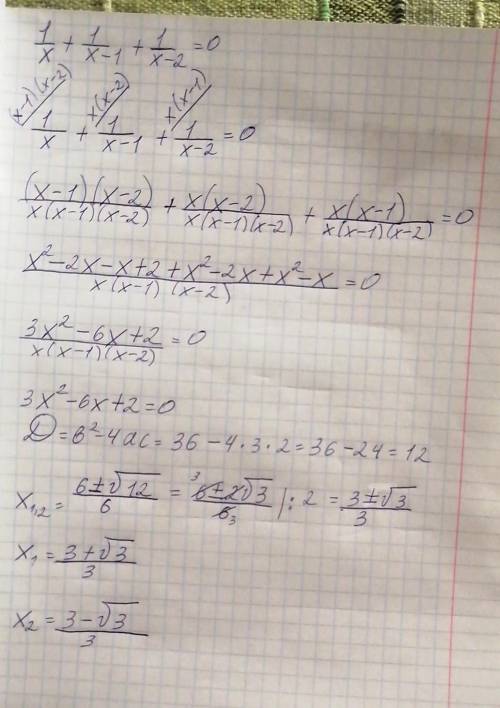 1/x + 1/(x-1) + 1/(x-2) = 0
(x-1)(x-2)/ 1/x + x(x-2)/ 1/(x-1) + x(x-1)/ 1/(x-2) = 0
(x-1)(x-2)/x(x-1)(x-2) + x(x-2)/x(x-1)(x-2) + x(x-1)/x(x-1)(x-2) = 0
x²-2x-x+2+x²-2x+x²-x/x(x-1)(x-2) = 0
3x²-6x+2/x(x-1)(x-2) = 0
3x²-6x+2=0
D=b²-4ac=36-4·3·2=36-24=12
x₁,₂ = 6±√12/6 = ³6±2√3/6₃ |:2 = 3±√3/3
x₁ = 3+√3/3
x₂ = 3-√3/3